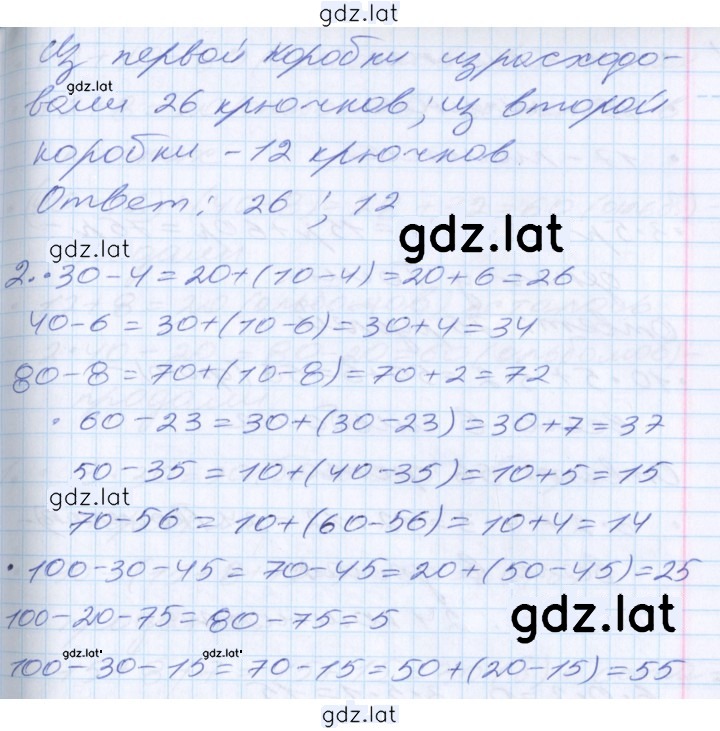 gdz.lat
Из первой коробки израсходо-
gdz.lat
вали 26 крючков, из второй
коробки – 12 крючков.
Ответ: 26 ; 12
gdz.lat
gdz.lat
2. • 30 – 4 = 20 + (10 – 4) = 20 + 6 = 26
40 – 6 = 30 + (10 – 6) = 30 + 4 = 34
80 – 8 = 70 + (10 – 8) = 70 + 2 = 72
• 60 – 23 = 30 + (30 – 23) = 30 + 7 = 37
50 – 35 = 10 + (40 – 35) = 10 + 5 = 15
gdz.lat
70 – 56 = 10 + (60 – 56) = 10 + 4 = 14
• 100 – 30 – 45 = 70 – 45 = 20 + (50 – 45) = 25
100 – 20 – 75 = 80 – 75 = 5
gdz.lat
gdz.lat gdz.lat
100 – 30 – 15 = 70 – 15 = 50 + (20 – 15) = 55
gdz.lat